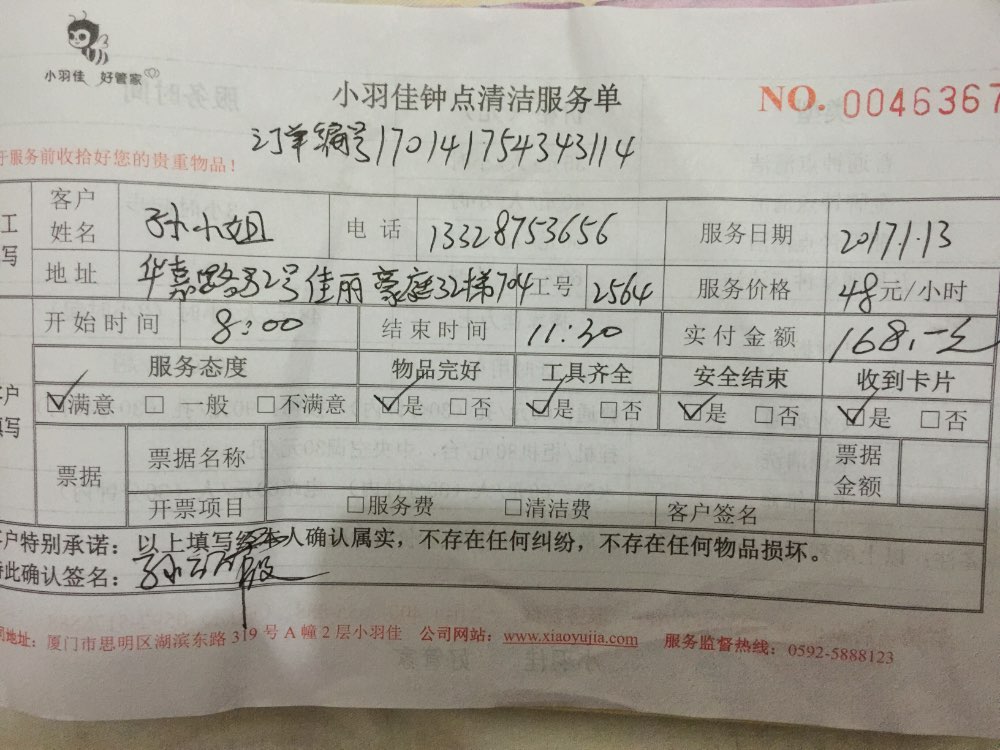 小羽佳 好管家
小羽佳钟点清洁服务单
NO. 0046367
订单编号170141754343114
于服务前收拾好您的贵重物品！
工 客户姓名 孙小姐 电话 13328753656 服务日期 2017.1.13
写 地址 华嘉路32号佳丽豪庭32梯704 工号 2564 服务价格 48元/小时
开始时间 8:00 结束时间 11:30 实付金额 168.-元
服务态度 物品完好 工具齐全 安全结束 收到卡片
户 ☑满意 □一般 □不满意 ☑是 □否 ☑是 □否 ☑是 □否 ☑是 □否
填写
票据 票据名称 票据金额
开票项目 □服务费 □清洁费 客户签名
客户特别承诺：以上填写经本人确认属实，不存在任何纠纷，不存在任何物品损坏。
特此确认签名：孙
司地址：厦门市思明区湖滨东路319号A幢2层小羽佳 公司网站：www.xiaoyujia.com 服务监督热线：0592-5888123